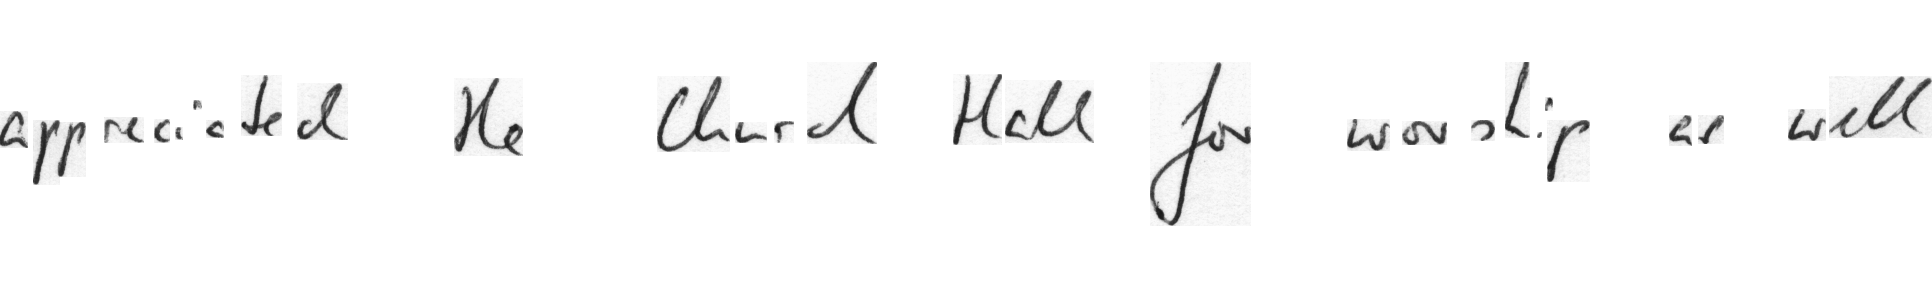 appreciated the Church Hall for worship as well